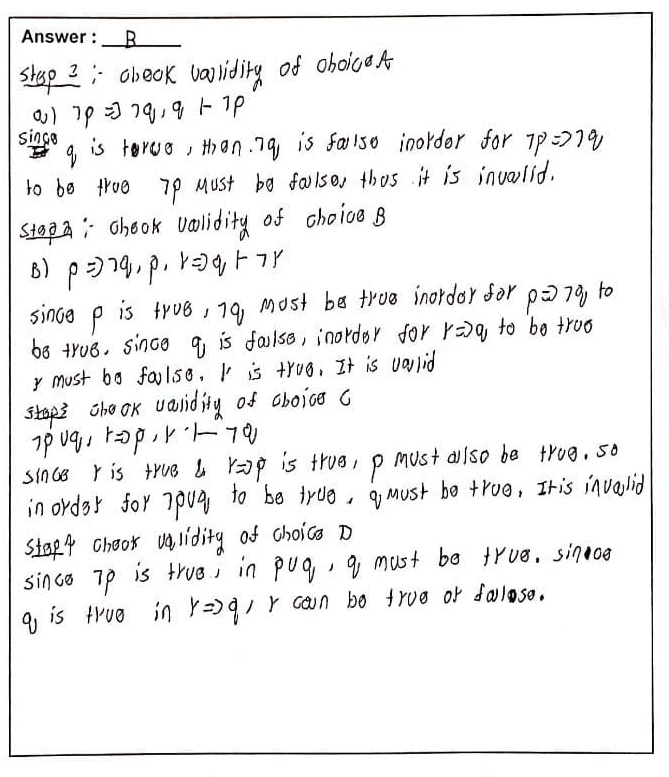 Answer : B
Step 1 :- check validity of choice A
a) ⌐p ⇒ ⌐q, q ⊢ ⌐p
since q is terue, then ⌐q is false inorder for ⌐p ⇒ ⌐q
to be true ⌐p must be false, thus it is invalid.
Step 2 :- check validity of choice B
B) p ⇒ ⌐q, p, r ⇒ q ⊢ ⌐r
since p is true, ⌐q must be true inorder for p ⇒ ⌐q to
be true. since q is false, inorder for r ⇒ q to be true
r must be false. r is true. It is valid
step3 check validity of choice C
⌐p ∪ q, r ⇒ p, r ⊢ ⌐q
since r is true & r ⇒ p is true, p must also be true. so
in order for ⌐p ∪ q to be true, q must be true. It is invalid
Step 4 check validity of choice D
since ⌐p is true, in p ∪ q, q must be true. since
q is true in r ⇒ q, r can be true or false.